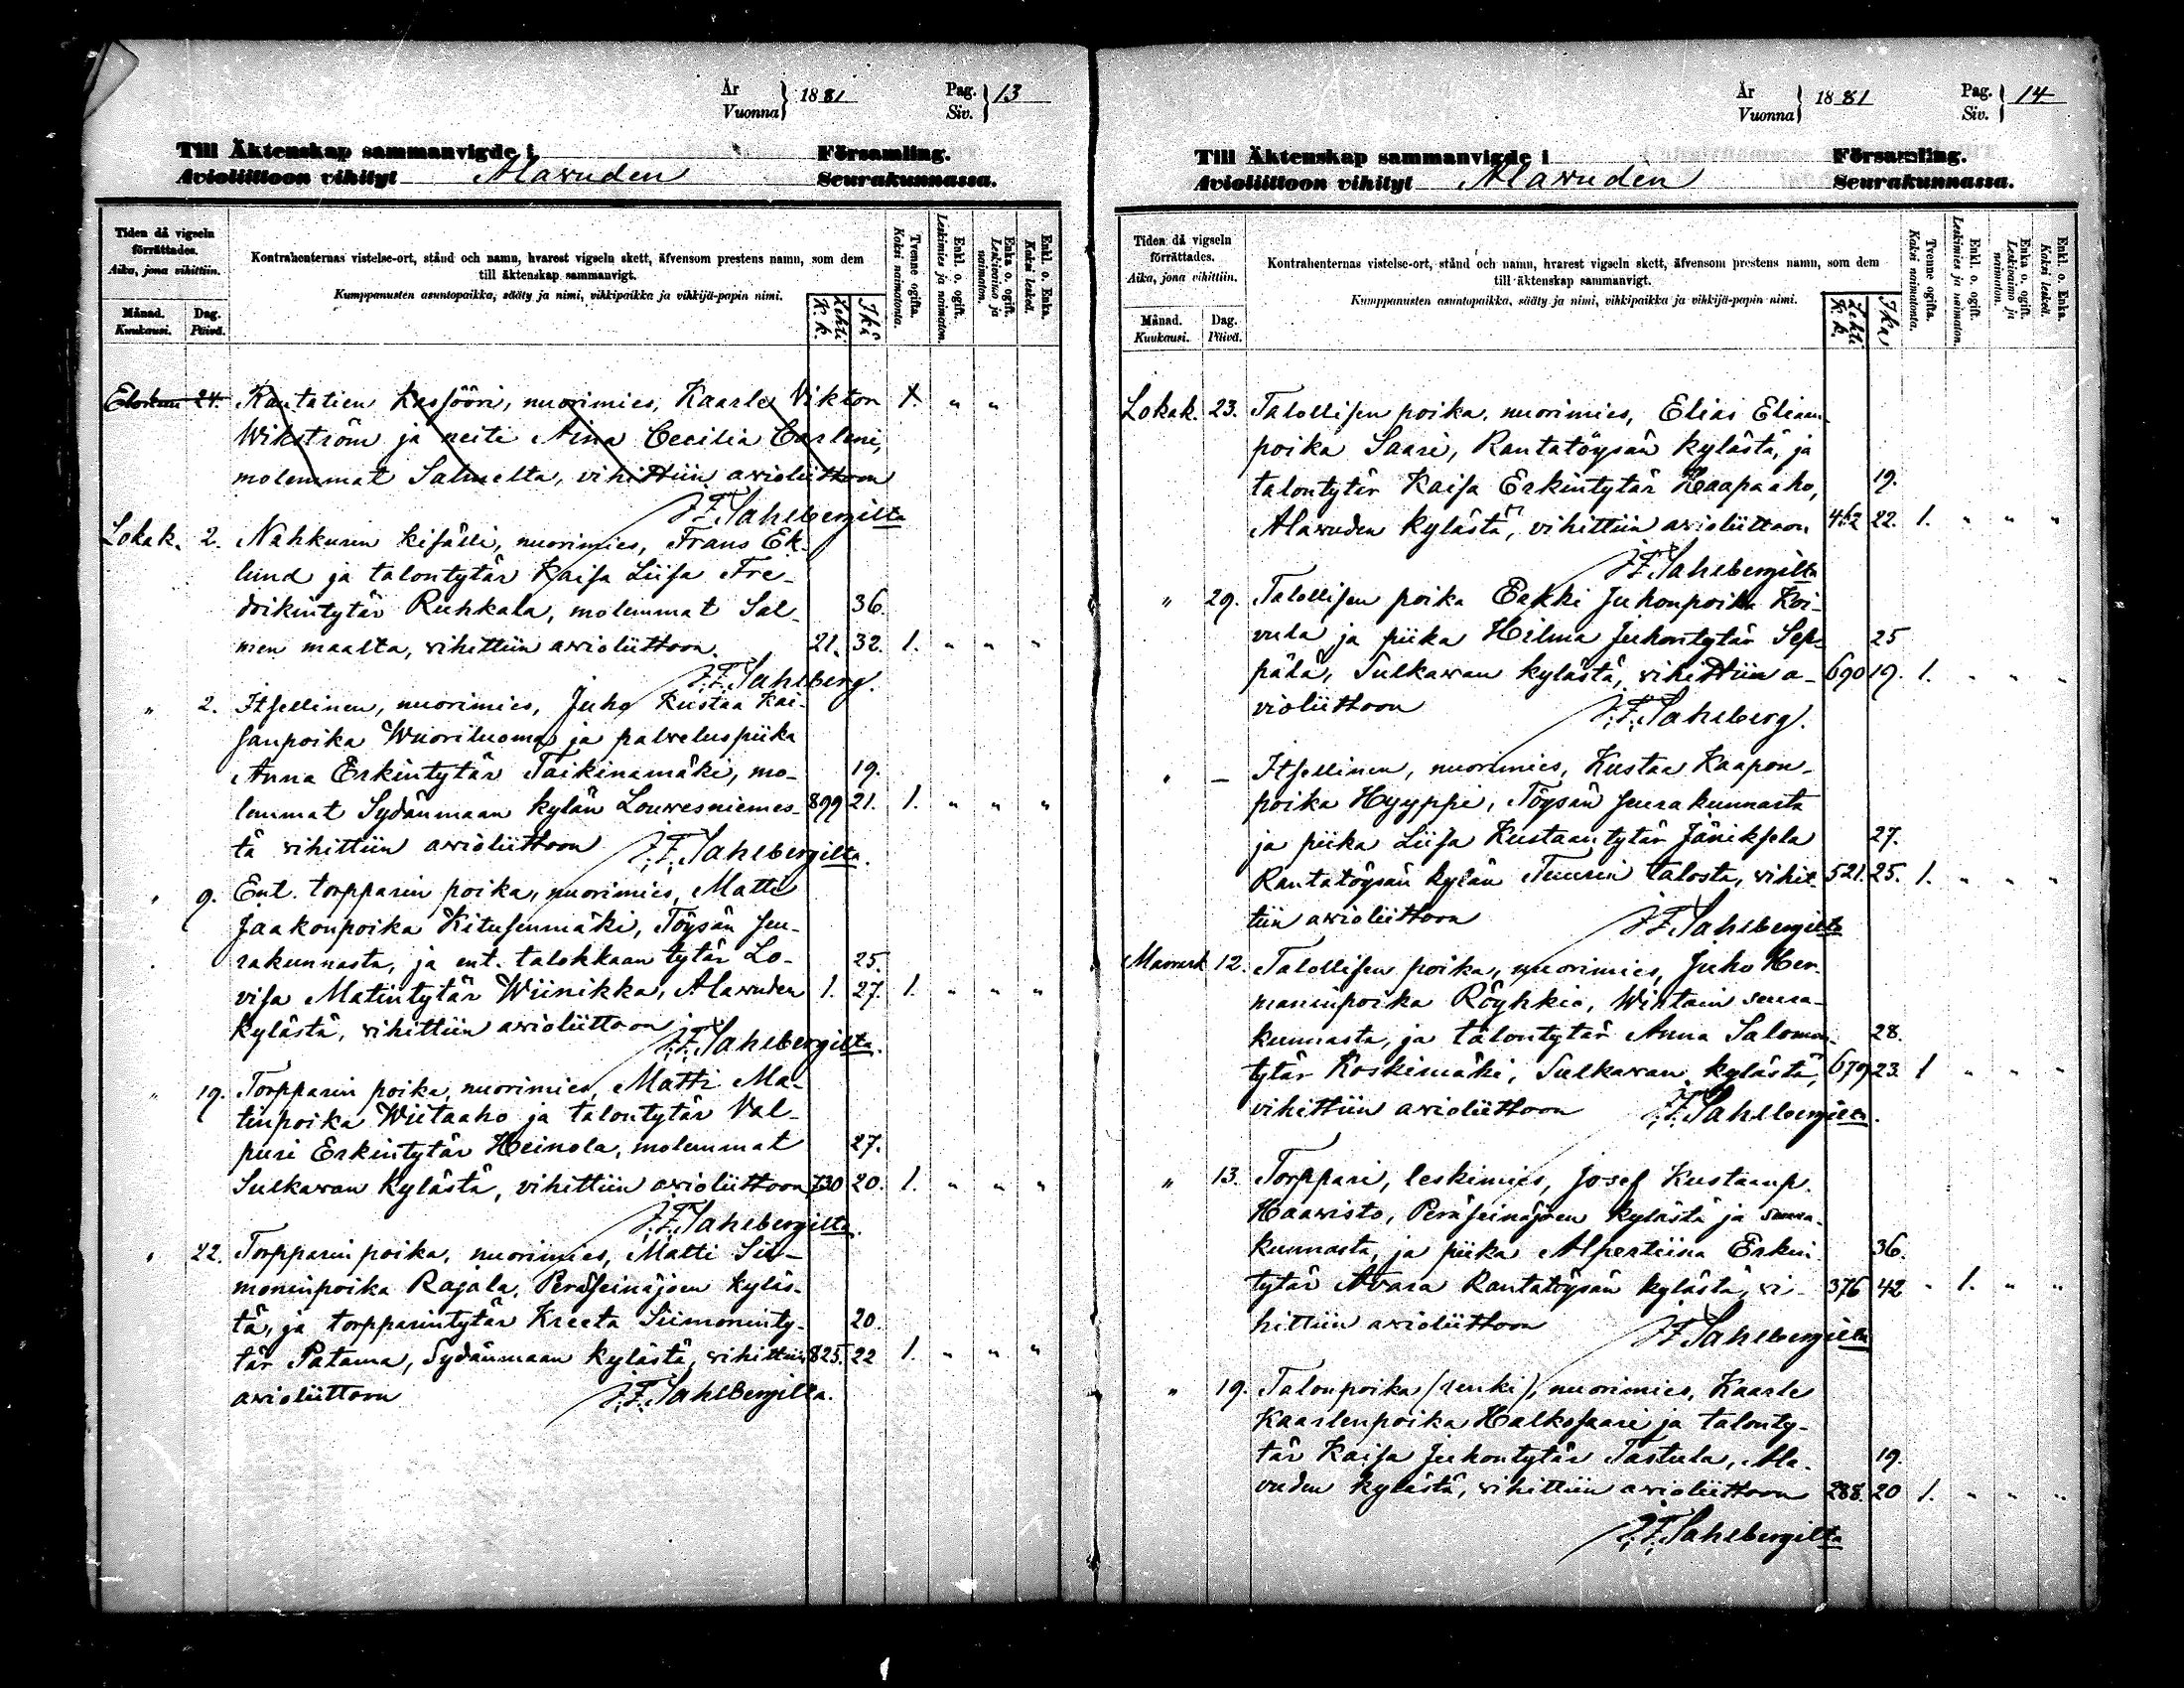 År
Vuonna } 1881
Pag.
Siv. } 13
Till Äktenskap sammanvigde i Församling.
Avioliittoon vihityt Alavuden Seurakunnassa.
Tiden då vigseln förrättades.
Aika, jona vihittiin.
Månad. Kuukausi.
Dag. Päivä.
Kontrahenternas vistelse-ort, stånd och namn, hvarest vigseln skett, äfvensom prestens namn, som dem
till äktenskap sammanvigt.
Kumppanusten asuntopaikka, sääty ja nimi, vihkipaikka ja vihkijä-papin nimi.
Lehti K. k.
Ikä
Tvenne ogifta. Kaksi naimatonta.
Enkl. o. ogift. Leskimies ja naimaton.
Enka o. ogift. Leskivaimo ja naimaton.
Enkl. o. Enka. Kaksi leskeä.
Elokuu 24. Rautatien kassööri, nuorimies, Kaarle Viktor X. " "
Wikström ja neiti Aina Cecilia Carleni,
molemmat Salmelta, vihittiin avioliittoon
J. F. Sahlbergilta
Lokak. 2. Nahkurin kisälli, nuorimies, Frans Ek-
lund ja talontytär Kaisa Liisa Fre-
drikintytär Ruhkala, molemmat Sal- 36.
men maalta, vihittiin avioliittoon. 21. 32. 1. " " "
J. F. Sahlberg.
" 2. Itsellinen, nuorimies, Juho Kustaa Kai-
sanpoika Wuoriluoma ja palveluspiika
Anna Erkintytär Taikinamäki, mo- 19.
lemmat Sydänmaan kylän Louvesniemes- 899 21. 1. " " "
tä vihittiin avioliittoon J. F. Sahlbergilta.
" 9. Ent. torpparin poika, nuorimies, Matti
Jaakonpoika Kitusenmäki, Töysän seu-
rakunnasta, ja ent. talokkaan tytär Lo- 25.
visa Matintytär Wiinikka, Alavuden 1. 27. 1. " " "
kylästä, vihittiin avioliittoon
J. F. Sahlbergilta.
" 19. Torpparin poika, nuorimies, Matti Ma-
tinpoika Wiitaaho ja talontytär Val-
puri Erkintytär Heinola, molemmat 27.
Sulkavan kylästä, vihittiin avioliittoon 730 20. 1. " " "
J. F. Sahlbergilta.
" 22. Torpparin poika, nuorimies, Matti Sii-
moninpoika Rajala, Peräseinäjoen kyläs-
tä, ja torpparintytär Kreeta Siimoninty- 20.
tär Patama, Sydänmaan kylästä, vihittiin 825. 22 1. " " "
avioliittoon J. F. Sahlbergilta.
År
Vuonna } 1881
Pag.
Siv. } 14
Till Äktenskap sammanvigde i Församling.
Avioliittoon vihityt Alavuden Seurakunnassa.
Tiden då vigseln förrättades.
Aika, jona vihittiin.
Månad. Kuukausi.
Dag. Päivä.
Kontrahenternas vistelse-ort, stånd och namn, hvarest vigseln skett, äfvensom prestens namn, som dem
till äktenskap sammanvigt.
Kumppanusten asuntopaikka, sääty ja nimi, vihkipaikka ja vihkijä-papin nimi.
Lehti K. k.
Ikä
Tvenne ogifta. Kaksi naimatonta.
Enkl. o. ogift. Leskimies ja naimaton.
Enka o. ogift. Leskivaimo ja naimaton.
Enkl. o. Enka. Kaksi leskeä.
Lokak. 23. Talollisen poika, nuorimies, Elias Elian-
poika Saari, Rantatöysän kylästä, ja
talontytär Kaisa Erkintytär Haapaaho, 19.
Alavuden kylästä, vihittiin avioliittoon 462 22. 1. " " "
J. F. Sahlbergilta
" 29. Talollisen poika Erkki Juhonpoika Koi-
vula ja piika Hilma Juhontytär Sep- 25
pälä, Sulkavan kylästä, vihittiin a- 690 19. 1. " " "
violiittoon J. F. Sahlberg.
" — Itsellinen, nuorimies, Kustaa Kaapon-
poika Hyyppi, Töysän seurakunnasta
ja piika Liisa Kustaantytär Jäniksela 27.
Rantatöysän kylän Tuurin talosta, vihit- 521. 25. 1. " " "
tiin avioliittoon J. F. Sahlbergilta
Marrask 12. Talollisen poika, nuorimies, Juho Her-
manninpoika Röyhkiö, Wirtain seura-
kunnasta, ja talontytär Anna Salomon- 28.
tytär Koskimäki, Sulkavan kylästä, 679 23. 1 " " "
vihittiin avioliittoon J. F. Sahlbergilta.
" 13. Torppari, leskimies, Josef Kustaanp.
Haavisto, Peräseinäjoen kylästä ja seura-
kunnasta, ja piika Alpertiina Erkin- 36.
tytär Avara Rantatöysän kylästä, vi- 376 42 " 1. " "
hittiin avioliittoon J. F. Sahlbergilta
" 19. Talonpoika (renki), nuorimies, Kaarle
Kaarlenpoika Halkosaari ja talonty-
tär Kaisa Juhontytär Tastula, Ala- 19.
vuden kylästä, vihittiin avioliittoon 288. 20 1. " " "
J. F. Sahlbergilta